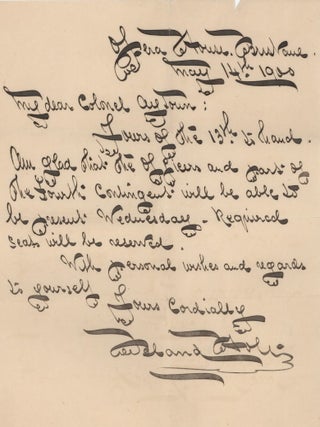 Opera House, Brisbane.
May 14th 1900
My dear Colonel
Yours of the 13th to hand.
Am glad that the officers and part of
the Fourth Contingent will be able to
be present Wednesday. Required
seats will be reserved.
With personal wishes and regards
to yourself
Yours Cordially